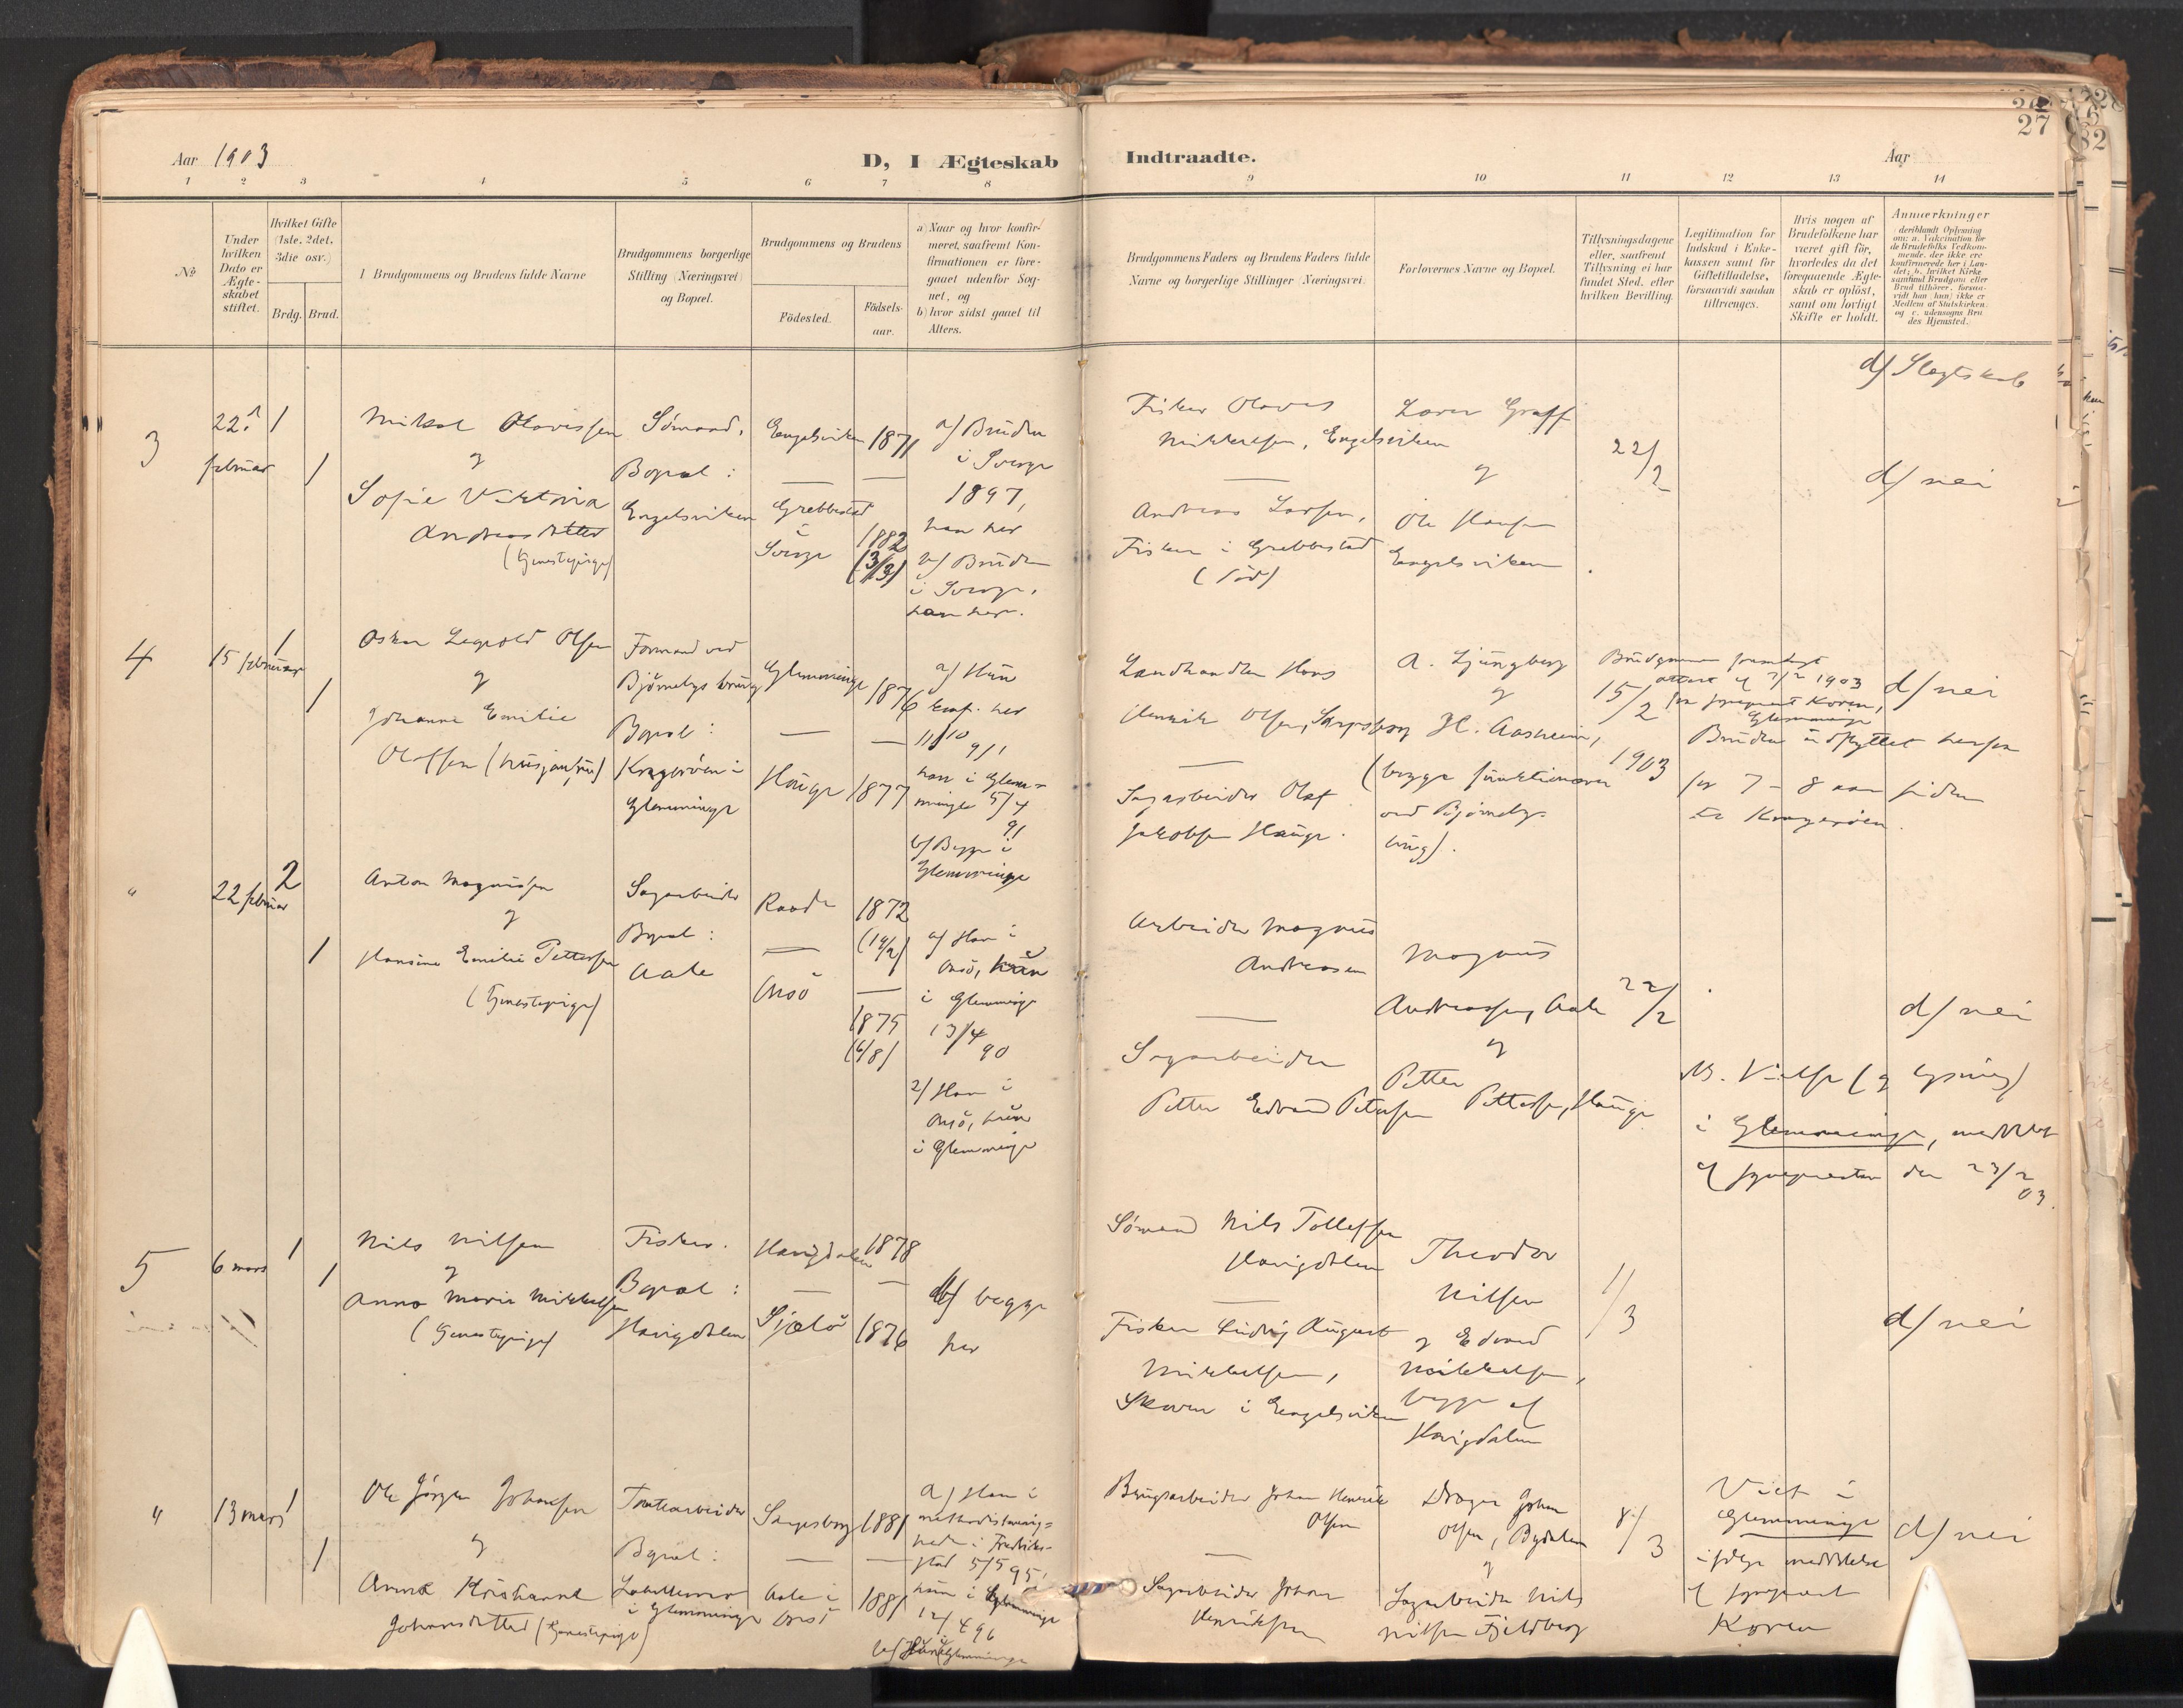 26
27
Aar 1903
D, I Ægteskab
Indtraadte.
Aar
1 2 3 4 5 6 7 8
9 10 11 12 13 14
No
Under hvilken Dato er Ægteskabet stiftet.
Hvilket Gifte (1ste, 2det, 3die osv.)
Brdg. Brud.
Brudgommens og Brudens fulde Navne
Brudgommens borgerlige Stilling (Næringsvei) og Bopæl.
Brudgommens og Brudens
Födested.
Födselsaar.
a) Naar og hvor konfirmeret, saafremt Konfirmationen er foregaaet udenfor Sognet, og
b) hvor sidst gaaet til Alters.
Brudgommens Faders og Brudens Faders fulde Navne og borgerlige Stillinger (Næringsvei)
Forlovernes Navne og Bopæl.
Tillysningsdagene eller, saafremt Tillysning ei har fundet Sted, efter hvilken Bevilling.
Legitimation for Indskud i Enkekassen samt for Giftetilladelse, forsaavidt saadan tiltrænges.
Hvis nogen af Brudefolkene har været gift för, hvorledes da det foregaaende Ægteskab er oplöst, samt om lovligt Skifte er holdt.
Anmærkninger
d) Slegtskab
3
22
februar
1
1
Mikal Olavissen
og
Sofie Viktoria
Andreasdatter
(Tjenestepige)
Sömand.
Bopæl:
Engelsviken
Engelsviken 1871
Grebbestad
Sverge
1882
(3/3)
a/ Bruden
i Sverge
1897,
han her
b/ Bruden
i Sverge,
han her.
Fisker Olaves
Mikkelsen, Engelsviken
Andreas Larsen,
Fisker i Grebbestad
(död)
Lorens Graff
og
Ole Hansen
Engelsviken
22/2
d/ nei
4
15 februar
1
1
Oskar Leopold Olsen
og
Johanne Emilie
Olafsen (husjomfru)
Formand ved
Björnebys brug
Bopæl:
Kragerøen i
Glemminge
Glemminge 1876
Hauge 1877
a/ Hun
konf. her
11/10 91
han i Glemminge 5/4
91
b/ Begge i
Glemminge
Landhandler Hans
Henrik Olsen, Sarpsborg
Sagarbeider Olaf
Jakobsen Hauge.
A. Ljungberg
og
H. Aasheim,
(begge funktionærer
ved Björneby
brug).
15/2
1903
Brudgommen fremlagt
attest af 7/2 1903
fra sogneprest Koren,
Glemminge
Bruden udflyttet herfra
for 7-8 aar siden
til Kragerøen.
d/ nei
"
22 februar
2
1
Anton Magnussen
og
Hansine Emilie Pettersen
(Tjenestepige)
Sagarbeider
Bopæl:
Aale
Raade 1872
(14/2)
Onsö
1875
(6/8)
a/ Han i
Onsö, hun
i Glemminge
13/4
90
2/ Han i
Onsö, hun
i Glemminge
Arbeider Magnus
Andreasen
Sagarbeider
Petter Edvard Petersen
Magnus
Andreassen, Aale
og
Petter
Pettersen, Hauge
22/2
d/ nei
NB. Vielse (og lysning)
i Glemminge, meddelt
af sognepresten den 23/2
03.
5
6 mars
1
1
Nils Nilsen
og
Anna Marie Mikkelsen
(Tjenestepige)
Fisker.
Bopæl:
Haugdalen
Haugdalen 1878
Sjælö 1876
b/ begge
her
Sömand Nils Tollefsen
Haugdalen
Fisker Ludvig August
Mikkelsen,
Skoven i Engelsviken
Theodor
Nilsen
og Edvard
Mikkelsen,
begge af
Haugdalen
1/3
d/ nei
"
13 mars
1
1
Ole Jörgen Johansen
og
Anna Kristianne
Johansdatter (Tjenestepige)
Tomtearbeider
Bopæl:
Labellemo
i Glemminge
Sarpsborg 1881
Aale i
Onsö
1881
a/ Han i
methodistmenigheden i Fredrikstad 5/5 95,
hun i Glemminge
12/4 96
b/ Hun i Glemminge
Brugsarbeider Johan Henrik
Olsen
Sagarbeider Johan
Henriksen
Drager Johan
Olsen, Bydalen
og
Sagarbeider Nils
Nilsen Fjeldberg
8/3
Viet i
Glemminge
ifölge meddelelse
af sogneprest
Koren
d/ nei